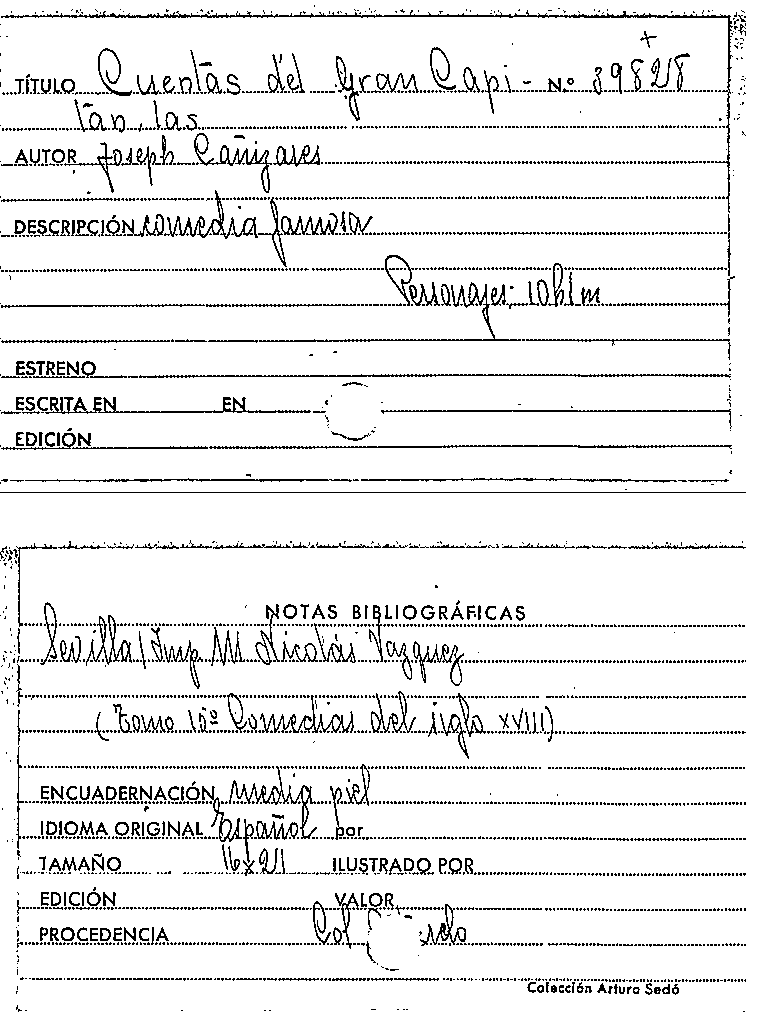 +
TÍTULO Cuentas del Gran Capi- N.º 39828
tan, las
AUTOR Joseph Cañizares
DESCRIPCIÓN comedia famosa
Personajes: 10h 1m
ESTRENO
ESCRITA EN EN
EDICIÓN
NOTAS BIBLIOGRÁFICAS
Sevilla / Imp M Nicolás Vazquez
(Tomo 15º Comedias del siglo XVIII)
ENCUADERNACIÓN media piel
IDIOMA ORIGINAL Español por
TAMAÑO 16x21 ILUSTRADO POR
EDICIÓN VALOR
PROCEDENCIA Col
Colección Arturo Sedó